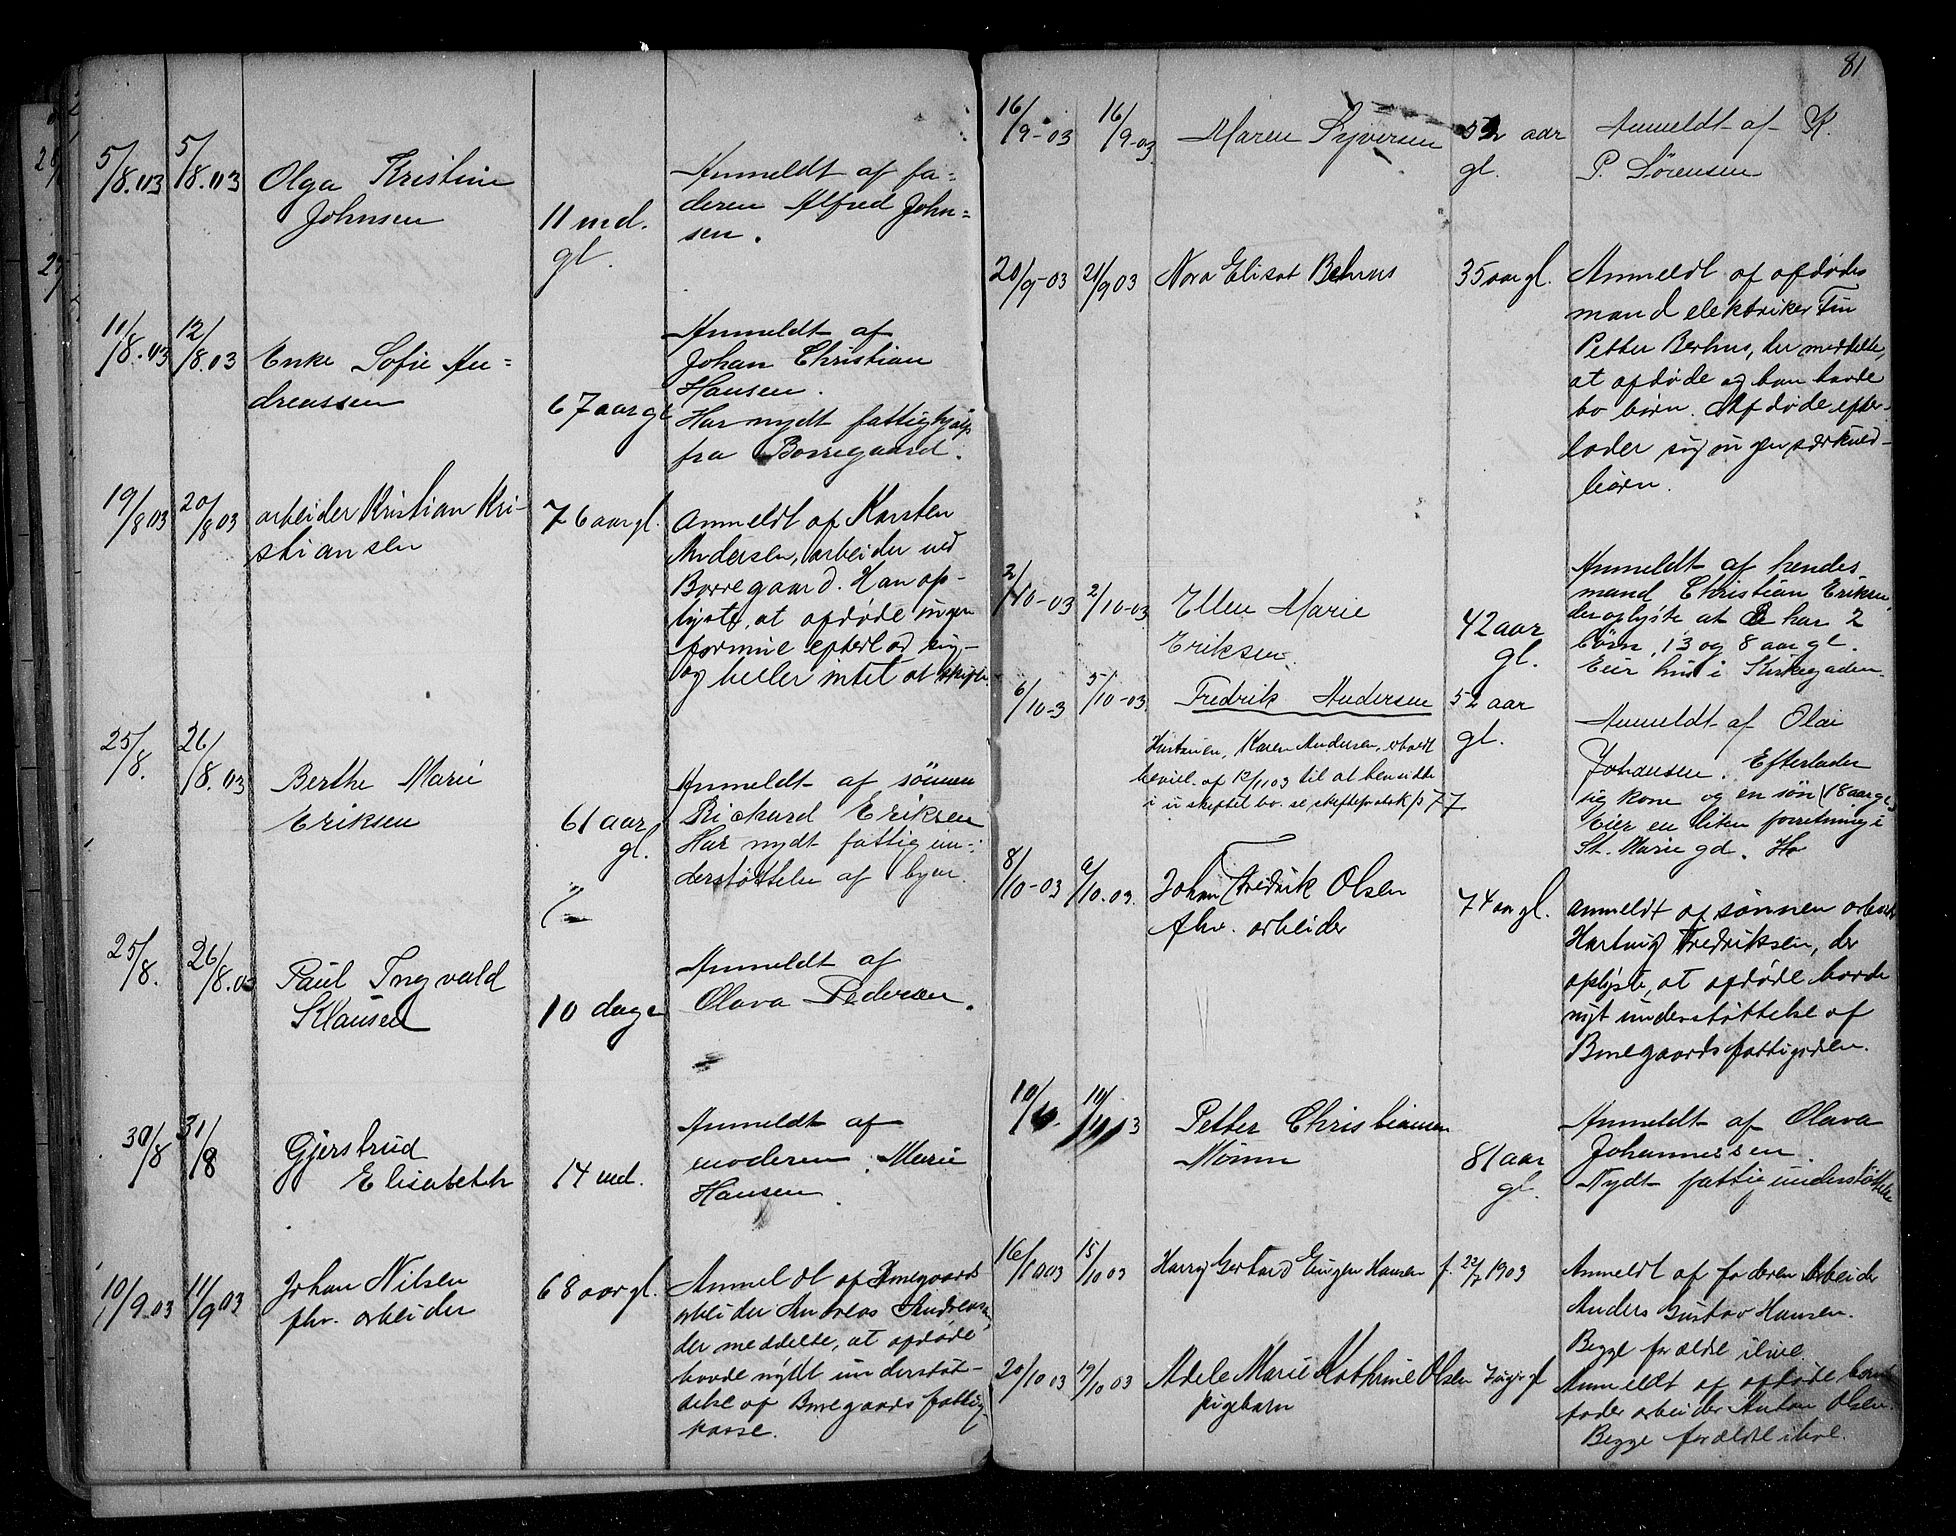 5/8.03 5/8.03 Olga Kristine
Johnsen
11 md.
gl.
Anmeldt af fa=
deren Alfred John=
sen.
11/8.03 12/8.03 Enke Sofie An=
dreassen
67 aar gl
Anmeldt af
Johan Christian
Hansen.
Har nydt fattighjælp
fra Borregaard.
19/8 03 20/8 03 arbeider Kristian Kri-
stiansen
76 aar gl.
Anmeldt af Karsten
Andersen, arbeider ved
Borregaard. Han op-
lyste, at afdøde ingen
formue efterlod sig,
og heller intet at skifte.
25/8. 26/8.03 Berthe Marie
Eriksen
61 aar
gl.
Anmeldt af sønnen
Richard Eriksen
Har nydt fattigun-
derstøttelse af byen.
25/8. 26/8.03 Paul Ingvald
Klausen
10 dage
Anmeldt af
Olava Pedersen.
30/8 31/8 Gjerstrud
Elisabeth
14 md.
Anmeldt af
moderen Marie
Hansen.
10/9.03 11/9 03 Johan Nilsen
fhv. arbeider
68 aar gl.
Anmeldt af Borregaards
arbeider Andreas Andreasen,
der meddelte, at afdøde
havde nydt understøt-
telse af Borregaards fattig-
kasse.
81
16/9-03 16/9-03 Maren Syversen
52 aar
gl.
Anmeldt af K.
P. Sørensen
20/9-03 21/9 03 Nora Elisat
35 aar gl.
Anmeldt af afdødes
mand elektriker
Petter der meddelte,
at afdøde og han havde
børn. Afdøde efter-
lader sig ingen særkuld-
børn.
2/10-03 2/10-03 Ellen Marie
Eriksen.
42 aar
gl.
Anmeldt af hendes
mand Christian Eriksen,
der oplyste at de har 2
børn, 13 og 8 aar gl.
Eier hus i Kirkegaden.
6/10-3 5/10-03 Fredrik Andersen
52 aar
gl.
Hustruen, Karen Andersen, erholdt
bevil. af 12/11 03 til at hensidde
i uskiftet bo. se skifteprotok p 77
Anmeldt af Olai
Johansen. Efterlader
sig kone og en søn (18 aar gl)
Eier en liten forretning i
St. Marie gd.
8/10-03 6/10.03. Johan Fredrik Olsen
fhv. arbeider
74 aar gl.
anmeldt af sønnen arbeider
Hartvig Fredriksen, der
oplyste, at afdøde havde
nyt understøttelse af
Borregaards fattigvæsen.
10/10. 10/10 3 Petter Christiansen
Monn
81 aar
gl.
Anmeldt af Olava
Johannessen.
Nydt fattigunderstøttelse
16/10 03 15/10 03 Harry Gerhard Eugen Hansen f. 22/7 1903
Anmeldt af faderen arbeider
Anders Gustav Hansen.
Begge forældre ilive
20/10 03 19/10 03 Adele Marie Kathrine Olsen
pigebarn
Anmeldt af afdøde barns
fader arbeider Anton Olsen.
Begge forældre ilive.